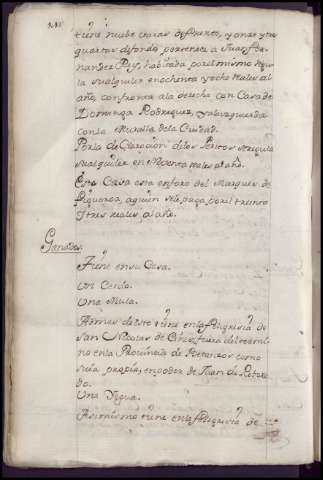 tiene nuebe varas de frente, y onze y tres
quartas de fondo, pertenece a Juan fer-
nandez Rey, havitada por el mismo, regu-
la su alquiler en ochenta y ocho reales al
año, confronta ala derecha con Casa de
Dominga Rodriguez, y ala izquierda
con la Muralla dela Ciudad.
Por la declarazion delos Peritos se regula
su alquiler en Nobenta reales al año.
Esta Casa esta en foro del Marques de
Figueroa, a quien se le paga por el treinta
y tres reales al año.
Ganados
Tiene en su Casa.
Un Cerdo.
Una Mula.
Ademas de esto tiene en la feligresia de
San Nicolas de Cines, fuera del termi-
no en la Provincia de Betanzos como
suia propia, en poder de Juan de
do.
Una Yegua.
Asimismo tiene en la feligresia de